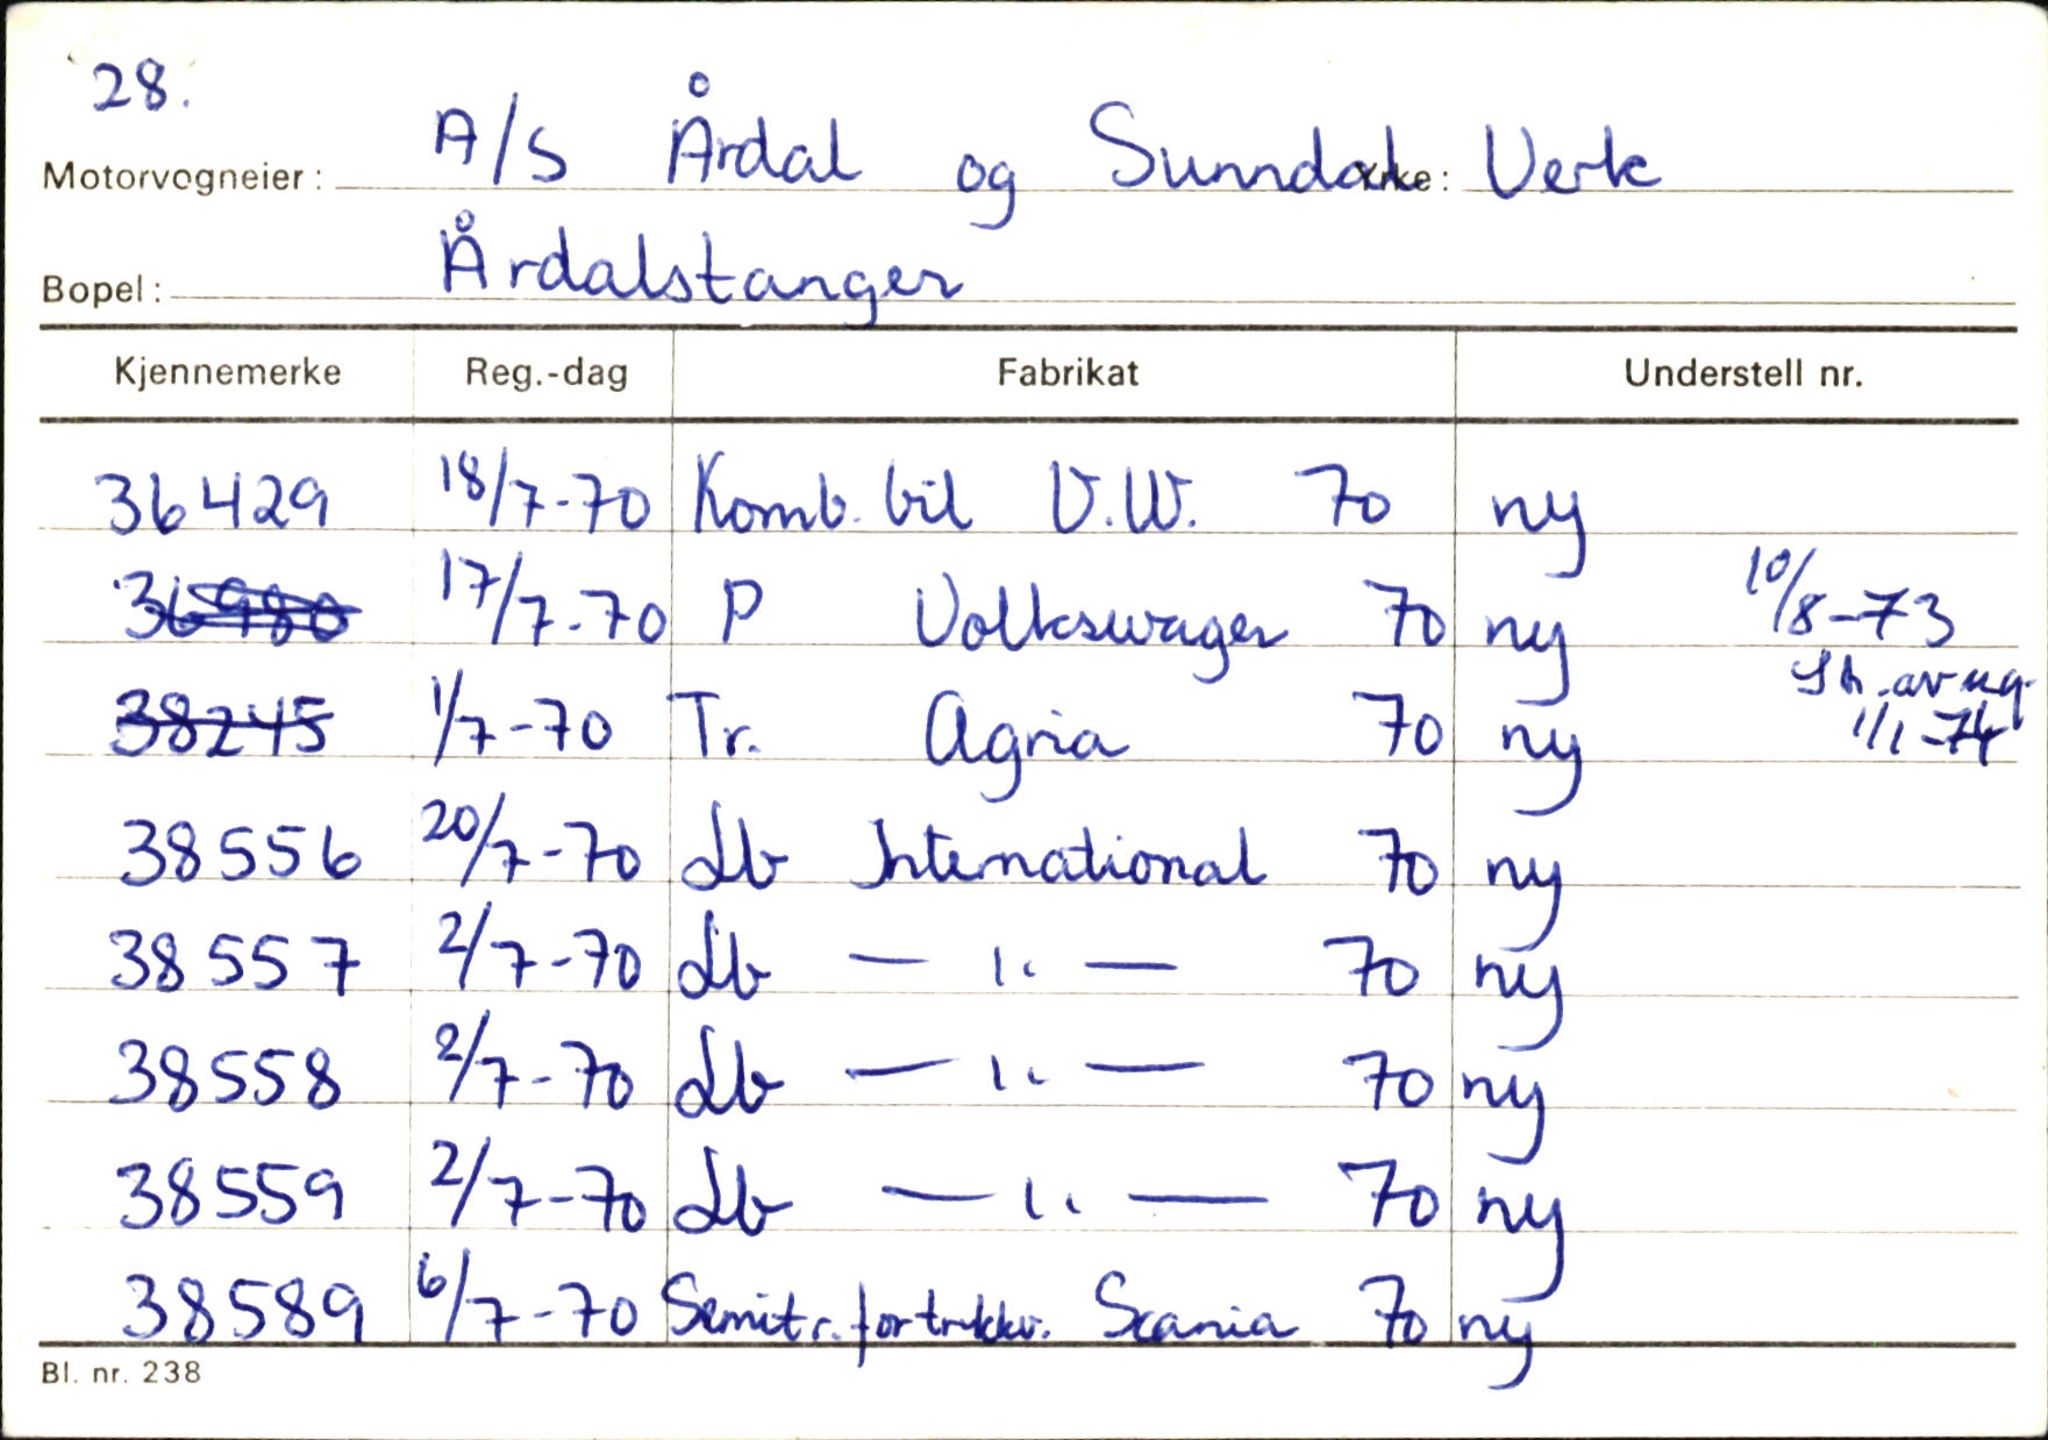 28.
Motorvogneier: A/S Årdal og Sunndal Yrke: Verk
Bopel: Årdalstangen
Kjennemerke Reg.-dag Fabrikat Understell nr.
36429 18/7-70 Komb. bil V.W. 70 ny
36980 17/7-70 P Volkswagen 70 ny 10/8-73
38245 1/7-70 Tr. Agria 70 ny 1/1-74
38556 20/7-70 Lb International 70 ny
38557 2/7-70 Lb — " — 70 ny
38558 2/7-70 Lb — " — 70 ny
38559 2/7-70 Lb — " — 70 ny
38589 6/7-70 Semitr. for trekkv. Scania 70 ny
Bl. nr. 238